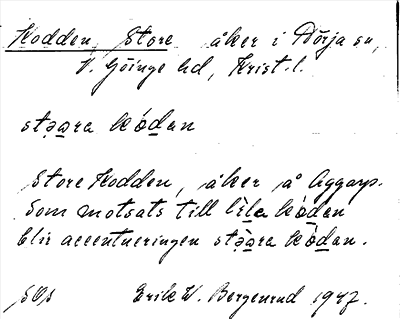 Kodden, Store åker i Dörja sn,
V. Göinge hd, Krist. l.
stə̱a̱ra kóda̱n
Store Kodden, åker å Aggarp.
Som motsats till lìla̱ kóda̱n
blir accentueringen stə̱̀a̱ra kòda̱n.
Erik W. Bergenrud 1947.